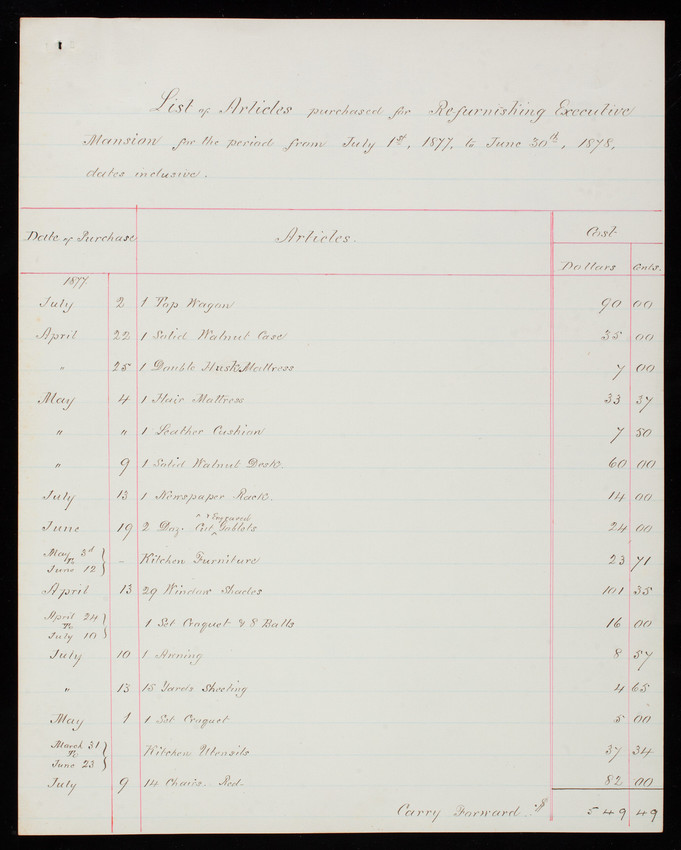 List of Articles purchased for Refurnishing Executive
Mansion for the period from July 1st, 1877, to June 30th, 1878,
dates inclusive.
Date of Purchase Articles. Cost
Dollars Cents.
1877
July 2 1 Top Wagon 90 00
April 22 1 Solid Walnut Case 35 00
" 25 1 Double Husk Mattress 7 00
May 4 1 Hair Mattress 33 37
" " 1 Leather Cushion 7 50
" 9 1 Solid Walnut Desk. 60 00
July 13 1 Newspaper Rack. 14 00
& Engraved
June 19 2 Doz. Cut Goblets 24 00
May 3d to June 12 } - Kitchen Furniture 23 71
April 13 29 Window Shades 101 35
April 24 to July 10 } 1 Set Croquet & 8 Balls 16 00
July 10 1 Awning 8 57
" 13 15 Yards Sheeting 4 65
May 1 1 Set Croquet 5 00
March 31 to June 23 } Kitchen Utensils 37 34
July 9 14 Chairs. Red. 82 00
Carry Forward. $ 549 49